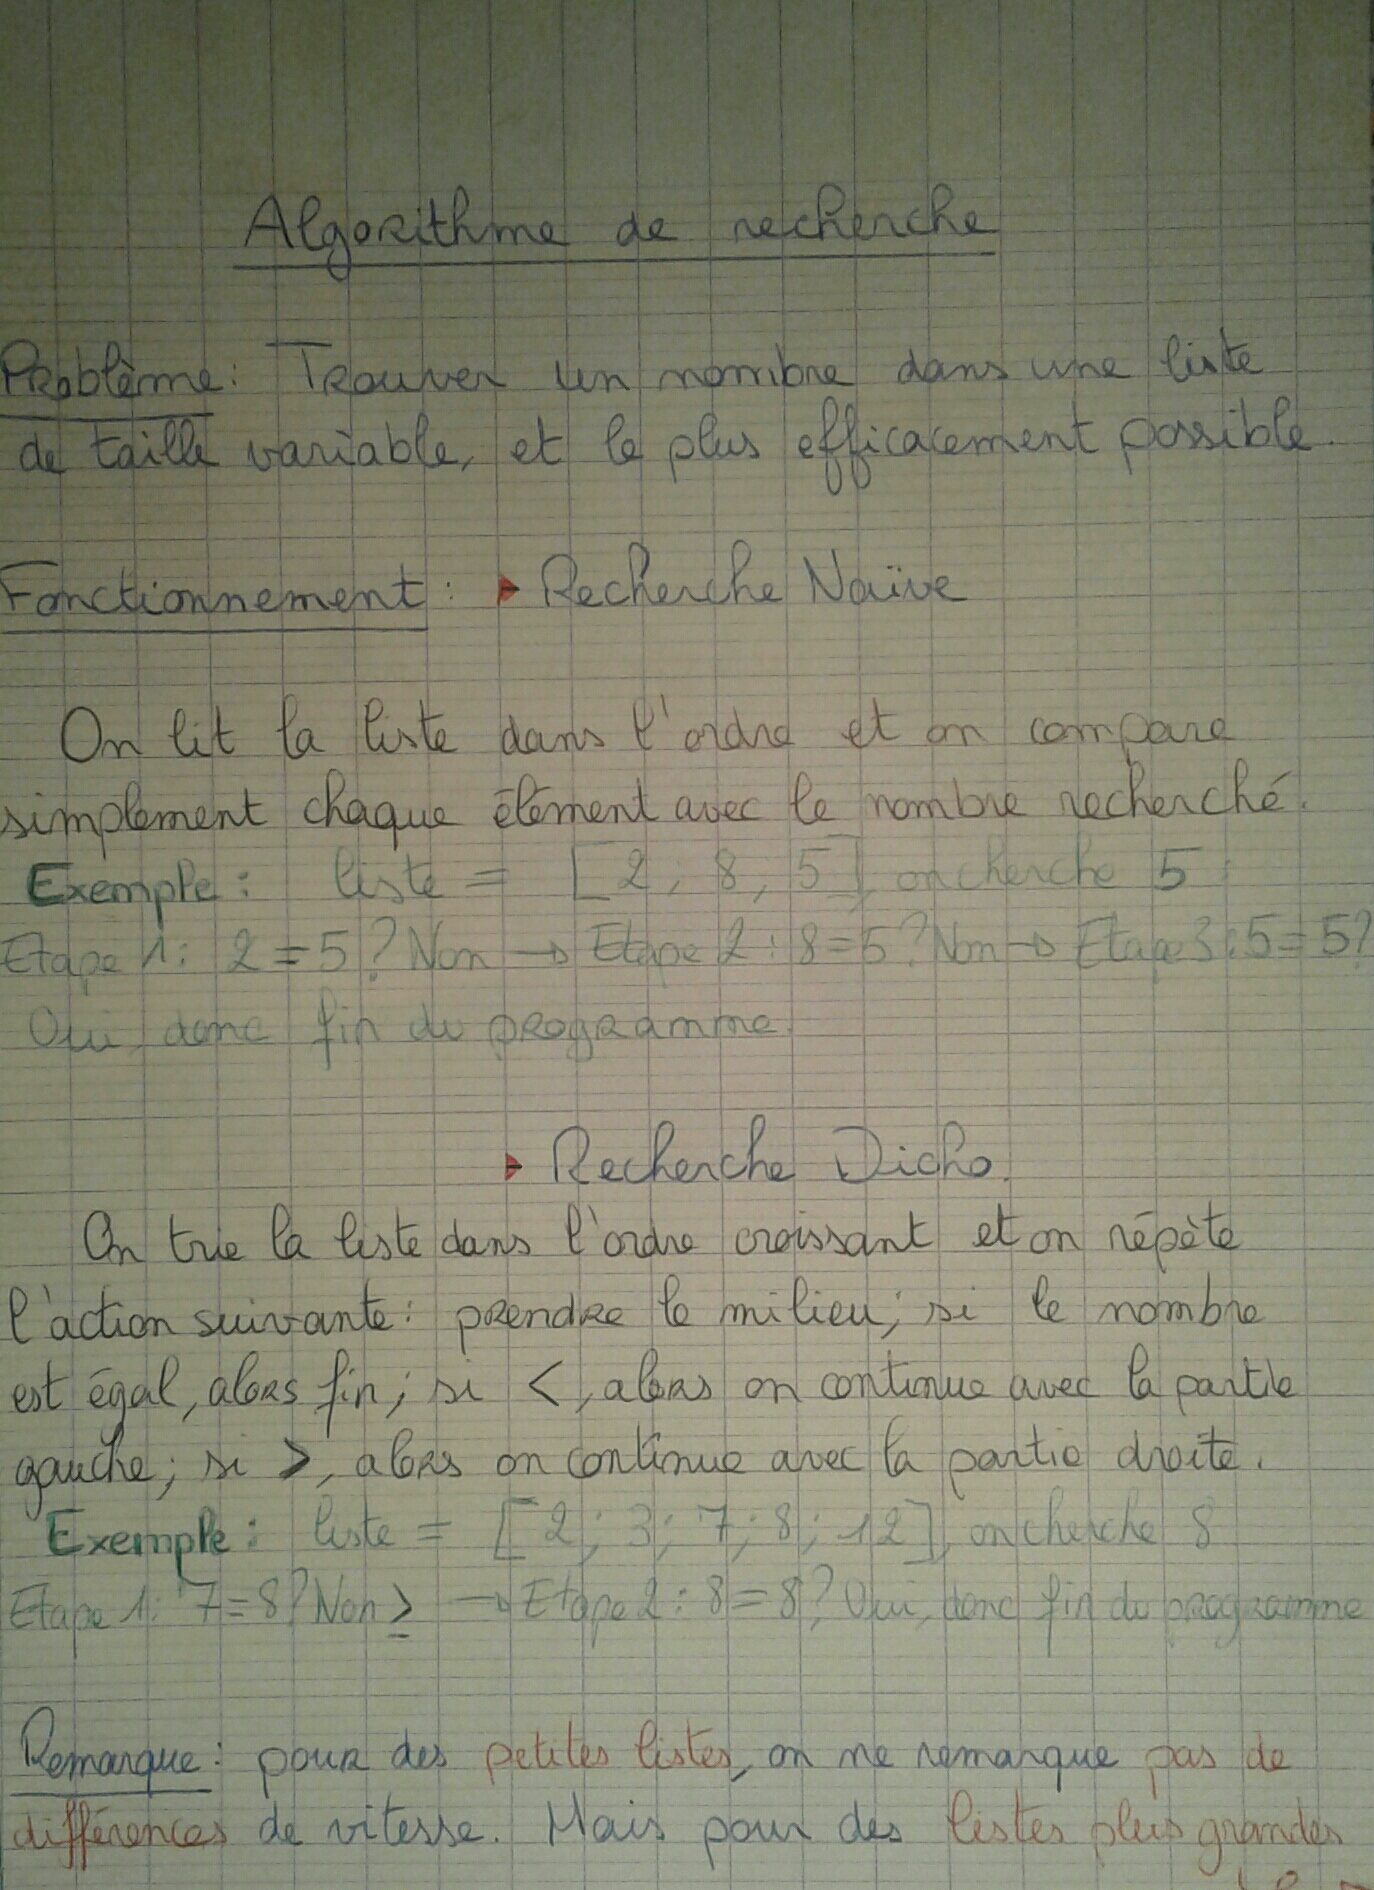 Algorithme de recherche
Problème : Trouver un nombre dans une liste
de taille variable, et le plus efficacement possible.
Fonctionnement : Recherche Naïve
On lit la liste dans l'ordre et on compare
simplement chaque élément avec le nombre recherché.
Exemple : liste = [2 ; 8 ; 5], on cherche 5 :
Etape 1 : 2 = 5 ? Non → Etape 2 : 8 = 5 ? Non → Etape 3 : 5 = 5 ?
Oui, donc fin du programme.
Recherche Dicho.
On trie la liste dans l'ordre croissant et on répète
l'action suivante : prendre le milieu ; si le nombre
est égal, alors fin ; si <, alors on continue avec la partie
gauche ; si >, alors on continue avec la partie droite.
Exemple : liste = [2 ; 3 ; 7 ; 8 ; 12], on cherche 8
Etape 1 : 7 = 8 ? Non > → Etape 2 : 8 = 8 ? Oui, donc fin du programme
Remarque : pour des petites listes, on ne remarque pas de
différences de vitesse. Mais pour des listes plus grandes